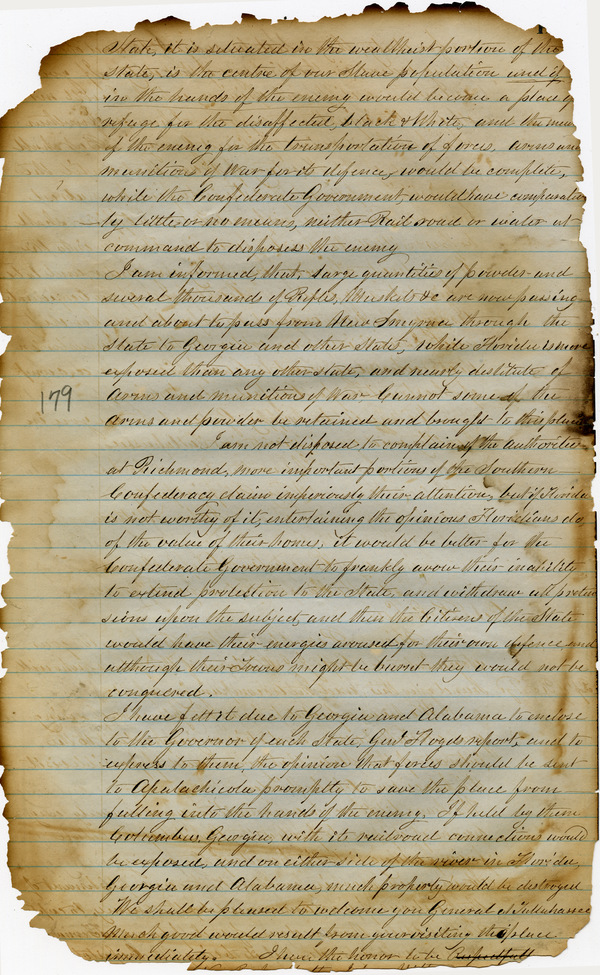 State, it is situated in the wealthiest portion of the
State, is the centre of our Slave population and if
in the hands of the enemy would become a place o
refuge for the disaffected, black & White, and the mea
of the enemy for the transportation of forces, arms an
munitions of War for its defence, would be complete,
while the Confederate Government, would have comparative
ly little or no means, neither Rail road or water at
command to disposess the enemy
I am informed, that large quantities of powder and
several thousands of Rifles, Muskets &c are now passing
and about to pass from New Smyrna through the
State to Georgia and other States, while Florida is more
exposed than any other state, and nearly destitute of
179
Arms and munitions of War Cannot some of the
Arms and powder be retained and brought to this place
I am not disposed to complain of the authorities
at Richmond, more important portions of the Southern
Confederacy claim imperiously their attention, but if Florida
is not worthy of it, entertaining the opinions Floridians do,
of the value of their homes, it would be better for the
Confederate Government to frankly avow their inability
to extend protection to the State, and withdraw all preten
sions upon the subject, and then the Citizens of the State
would have their energies aroused for their own defence and
although their Towns might be burnt they would not be
conquered.
I have felt it due to Georgia and Alabama to enclose
to the Governor of each State, Genl Floyds report, and to
express to them, the opinion that forces should be sent
to Apalachicola promptly to save the place from
falling into the hands of the enemy. If held by them
Columbus, Georgia, with its railroad connections would
be exposed, and on either side of the river in Florida,
Georgia and Alabama, much property would be destroyed
We shall be pleased to welcome you General at Tallahassee
Much good would result from your visiting the place
immediately. I have the honor to be Respectfull